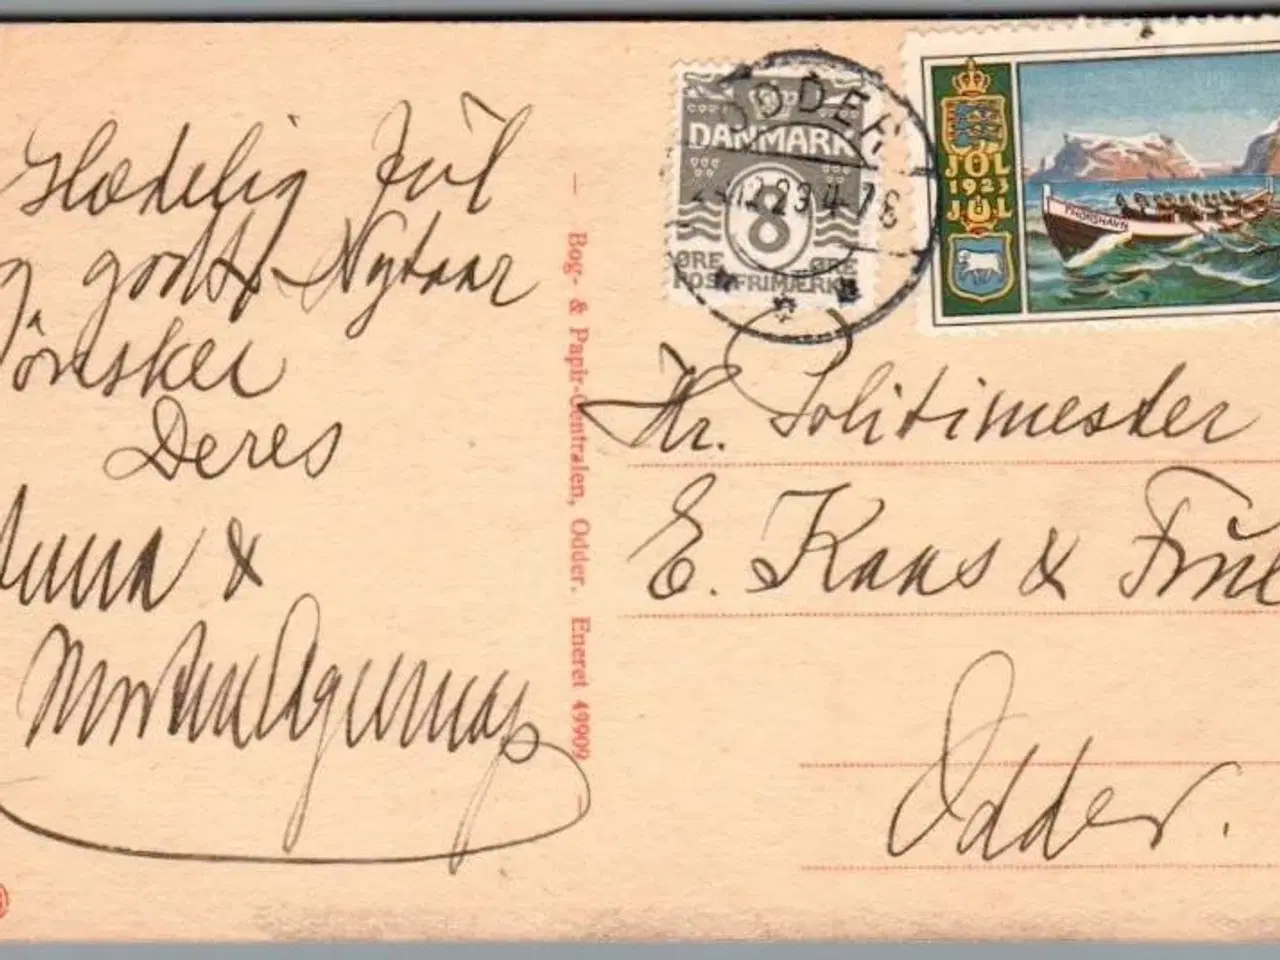 Glædelig Jul
og godt Nytaar
ønsker
Deres
Anna &
Bog- & Papir-Centralen, Odder. Eneret 49909
ODDER
DANMARK
8
ØRE ØRE
POSTFRIMÆRKE
JUL
1923
JUL
THORSHAVN
Hr. Politimester
E. Kaas & Frue
Odder.